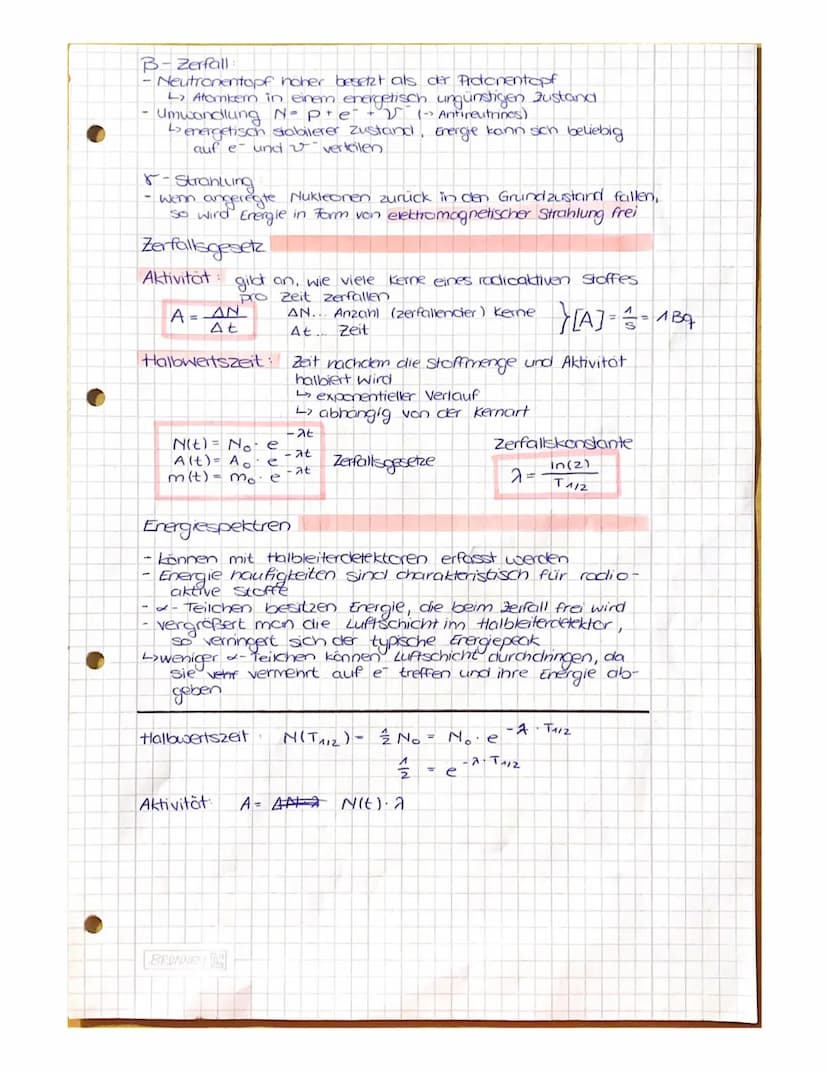 β-Zerfall:
- Neutronentopf höher besetzt als der Protonentopf
↳ Atomkern in einem energetisch ungünstigen Zustand
- Umwandlung N = p + e⁻ + ν⁻ (-> Antineutrinos)
↳ energetisch stabilerer Zustand, Energie kann sich beliebig
auf e⁻ und ν⁻ verteilen
γ-Strahlung
- wenn angeregte Nukleonen zurück in den Grundzustand fallen,
so wird Energie in Form von elektromagnetischer Strahlung frei
Zerfallsgesetz
Aktivität: gibt an, wie viele Kerne eines radioaktiven Stoffes
pro Zeit zerfallen
A = ΔN/Δt ΔN... Anzahl (zerfallender) Kerne }[A] = 1/s = 1Bq
Δt... Zeit
Halbwertszeit: Zeit nachdem die Stoffmenge und Aktivität
halbiert wird
↳ exponentieller Verlauf
↳ abhängig von der Kernart
N(t) = N₀ · e^-λt Zerfallskonstante
A(t) = A₀ · e^-λt Zerfallsgesetze λ = ln(2)/T1/2
m(t) = m₀ · e^-λt
Energiespektren
- können mit Halbleiterdetektoren erfasst werden
- Energie häufigkeiten sind charakteristisch für radio-
aktive Stoffe
- α-Teilchen besitzen Energie, die beim Zerfall frei wird
- vergrößert man die Luftschicht im Halbleiterdetektor,
so verringert sich der typische Energiepeak
↳ weniger α-Teilchen können Luftschicht durchdringen, da
sie vermehrt auf e⁻ treffen und ihre Energie ab-
geben
Halbwertszeit: N(T1/2) = 1/2 N₀ = N₀ · e^-λ·T1/2
1/2 = e^-λ·T1/2
Aktivität: A = N(t) · λ
BRUNNEN